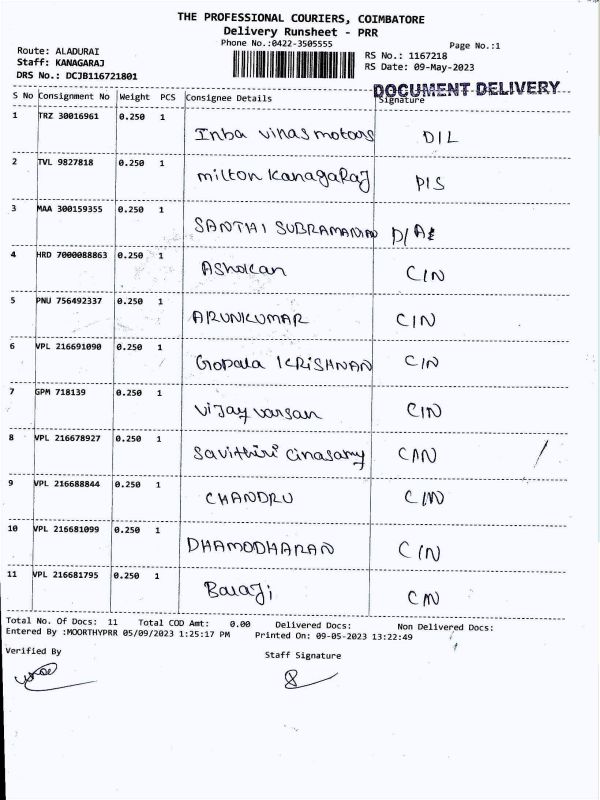 THE PROFESSIONAL COURIERS, COIMBATORE
Delivery Runsheet - PRR
Phone No.:0422-3505555
Page No.:1
Route: ALADURAI
Staff: KANAGARAJ
DRS No.: DCJB116721801
RS No.: 1167218
RS Date: 09-May-2023
DOCUMENT DELIVERY
S No Consignment No Weight PCS Consignee Details Signature
1 TRZ 30016961 0.250 1 Inba vinas motoors DIL
2 TVL 9827818 0.250 1 milton kanagaRaj PIS
3 MAA 300159355 0.250 1 SANTHI SUBRAMANIAN
4 HRD 7000088863 0.250 1 AShokan CIN
5 PNU 756492337 0.250 1 ARUNKUMAR CIN
6 VPL 216691090 0.250 1 Gopala KRISHNAN CIN
7 GPM 718139 0.250 1 Vijay varsan CIN
8 VPL 216678927 0.250 1 Savithiri Cinasamy CAN
9 VPL 216688844 0.250 1 CHANDRU CIN
10 VPL 216681099 0.250 1 DHAMODHARAN CIN
11 VPL 216681795 0.250 1 Balaji
Total No. Of Docs: 11 Total COD Amt: 0.00 Delivered Docs: Non Delivered Docs:
Entered By :MOORTHYPRR 05/09/2023 1:25:17 PM Printed On: 09-05-2023 13:22:49
Verified By
Staff Signature